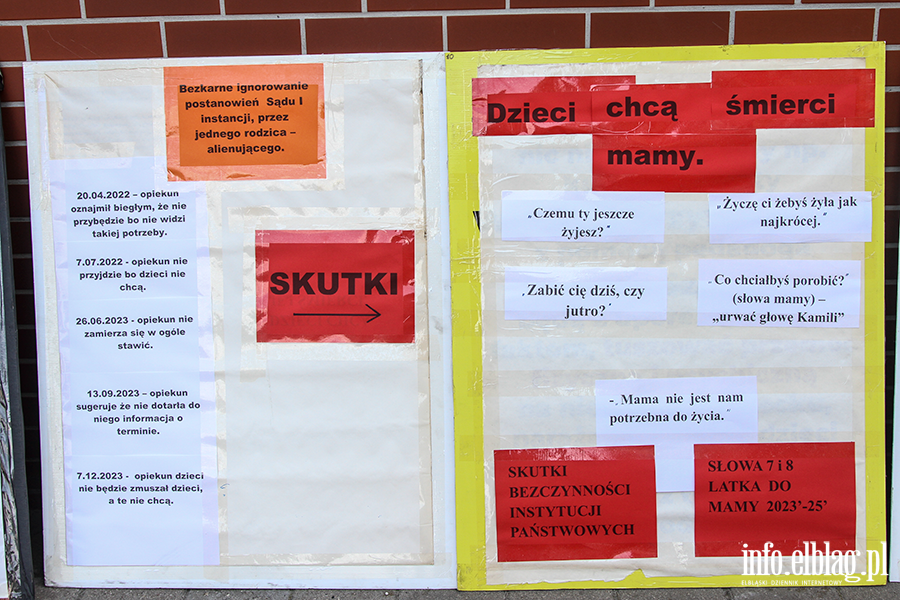 Bezkarne ignorowanie
postanowień Sądu I
instancji, przez
jednego rodzica –
alienującego.
20.04.2022 – opiekun
oznajmił biegłym, że nie
przybędzie bo nie widzi
takiej potrzeby.
7.07.2022 - opiekun nie
przyjdzie bo dzieci nie
chcą.
26.06.2023 - opiekun nie
zamierza się w ogóle
stawić.
13.09.2023 – opiekun
sugeruje że nie dotarła do
niego informacja o
terminie.
7.12.2023 - opiekun dzieci
nie będzie zmuszał dzieci,
a te nie chcą.
SKUTKI
Dzieci chcą śmierci
mamy.
„Czemu ty jeszcze
żyjesz?"
„Życzę ci żebyś żyła jak
najkrócej."
„Zabić cię dziś, czy
jutro?"
„Co chciałbyś porobić?"
(słowa mamy) –
„urwać głowę Kamili”
-„Mama nie jest nam
potrzebna do życia."
SKUTKI
BEZCZYNNOŚCI
INSTYTUCJI
PAŃSTWOWYCH
SŁOWA 7 i 8
LATKA DO
MAMY 2023'-25'
info.elblag.pl
ELBLĄSKI DZIENNIK INTERNETOWY